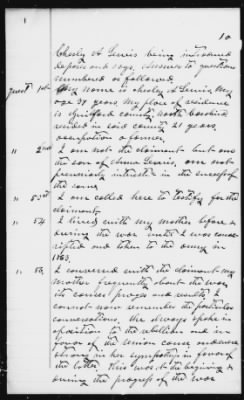 1
10
Chesley A Lewis being introduced
deposes and says, answers to questions
numbered as followed
quest 1st My name is Chesley A Lewis my
age 31 years My place of residence
is Guilford county North Carolina
resided in said county 21 years
occupation a farmer
" 2nd I am not the claimant but one
the son of Lewis, am not
pecuniarily interested in the success of
the same
" I am called here to testify for the
claimant
" I lived with my mother before &
during the war until I was conscripted
and taken to the army in
1863.
" I conversed with the claimant my
mother frequently about the war
its causes progress and results, I
cannot now remember the particular
conversations, She always spoke in
opposition to the rebellion and in
favor of the Union cause and was
strong in her sympathy in favor of
the latter. This was at the begining &
during the progress of the war